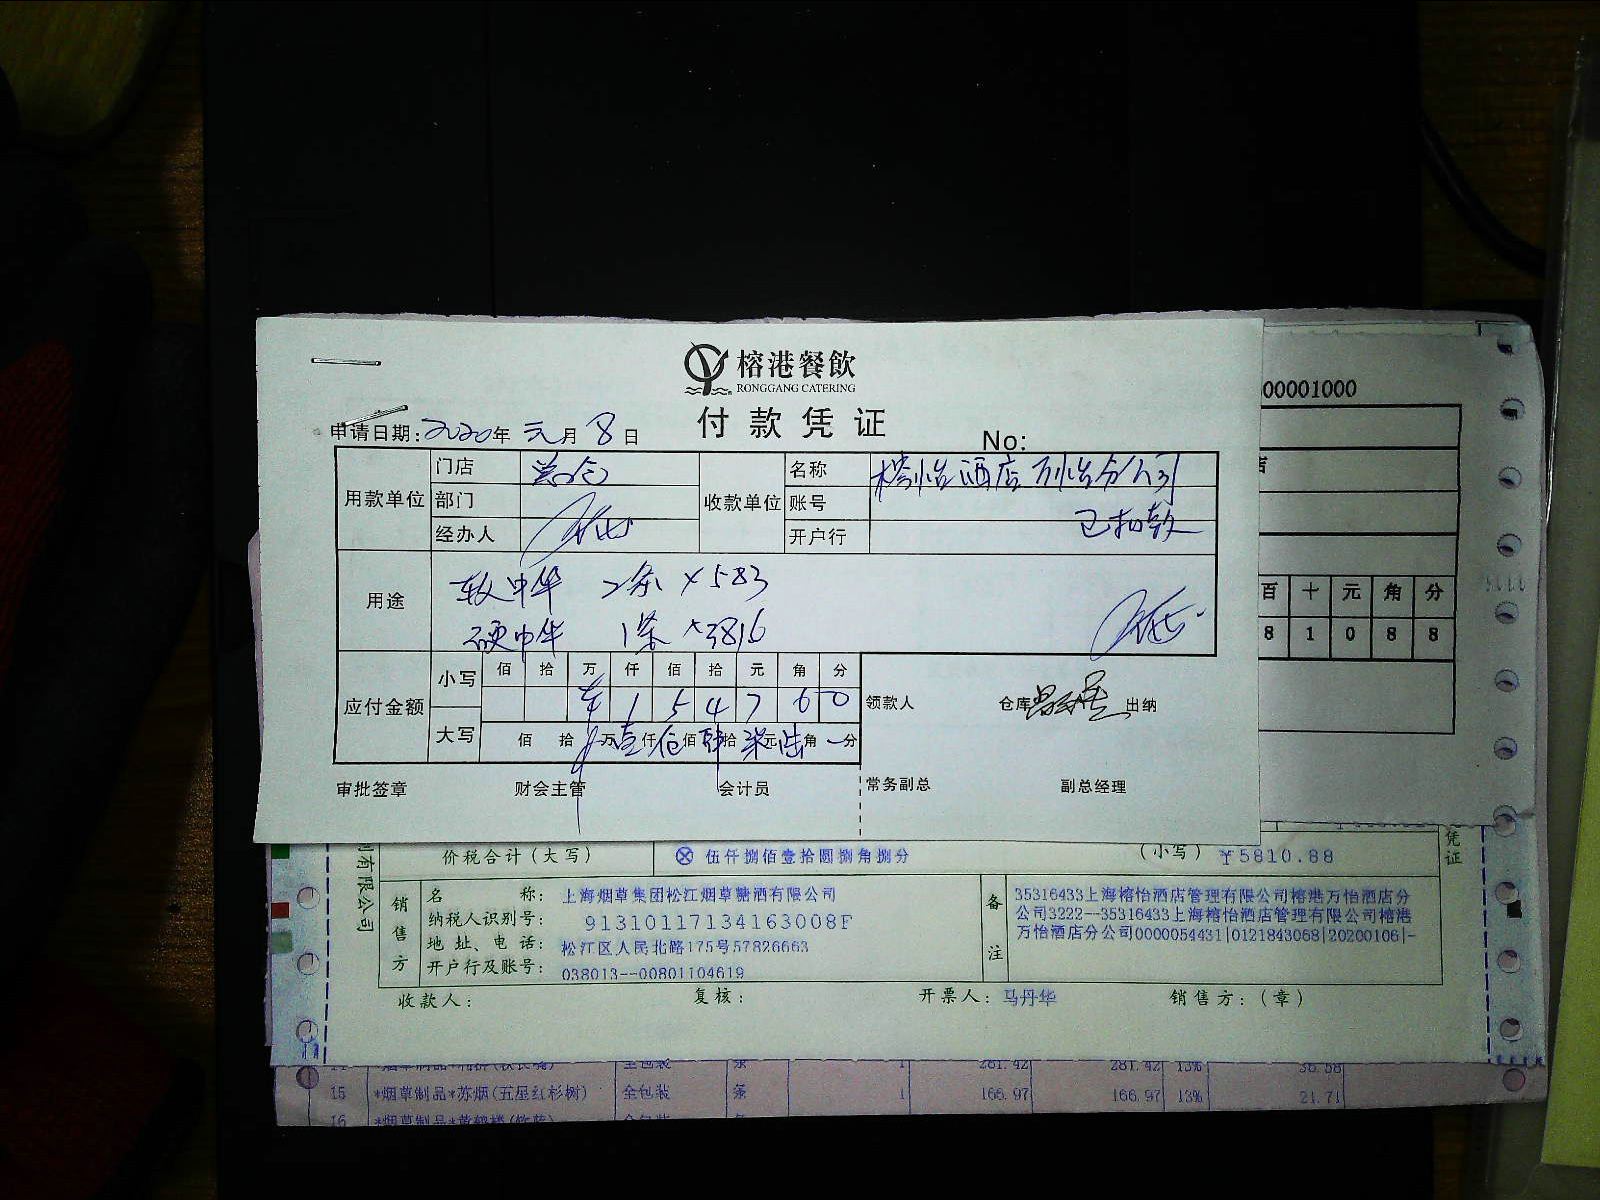 榕港餐飲
RONGGANG CATERING
付款凭证
申请日期:2020年 元月 8日
No:
00001000
用款单位 门店 收款单位 名称 榕怡酒店万怡分公司
部门 账号
经办人 开户行 已扣款
用途 软中华 2条×583
硬中华 1条×381.6
百 十 元 角 分
8 1 0 8 8
应付金额 小写 佰 拾 万 仟 佰 拾 元 角 分
1 5 4 7 6 0
大写 佰 拾 万 壹仟 伍佰 肆拾 柒元 陆角 分
领款人 仓库 出纳
审批签章 财会主管 会计员 常务副总 副总经理
价税合计(大写) ⊗ 伍仟捌佰壹拾圆捌角捌分 (小写) ¥5810.88
凭证
有限公司
销售方
名 称: 上海烟草集团松江烟草糖酒有限公司
纳税人识别号: 91310117134163008F
地 址、电 话: 松江区人民北路175号57826663
开户行及账号: 038013--00801104619
备注
35316433上海榕怡酒店管理有限公司榕港万怡酒店分
公司3222--35316433上海榕怡酒店管理有限公司榕港
万怡酒店分公司0000054431|0121843068|20200106|-
收款人: 复核: 开票人: 马丹华 销售方:(章)
全包装 条 1 281.42 281.42 13% 36.58
15 *烟草制品*苏烟(五星红杉树) 全包装 条 1 166.97 166.97 13% 21.71
16